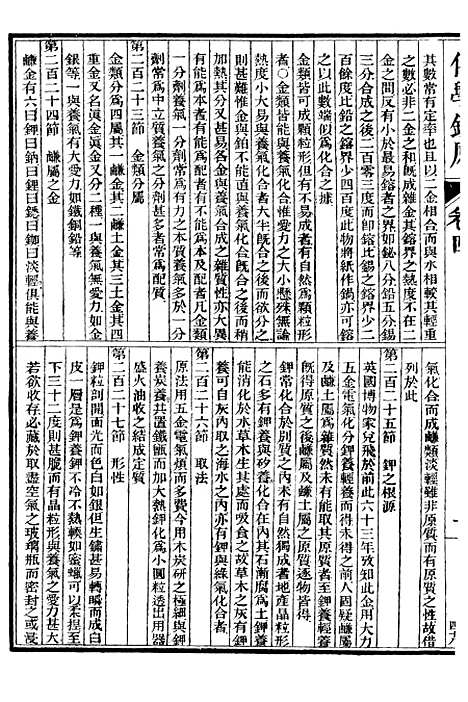 化學鑑原 卷四
其數常有定率也且以二金相合而與水相較其輕重
之數必非二金之和旣成雜金其鎔界之熱度不在二
金之間反有小於最易鎔者之界如鉍八分鉛五分錫
三分成合之後二百零三度而卽鎔比錫之鎔界少二
百餘度比鉛之鎔界少四百度此物將紙作鍋亦可鎔
之以此數端似可爲化合之據
金類皆可成顆粒形但有不易成者有自然爲顆粒形
者○金類皆能與養氣化合惟愛力之大小懸殊無論
熱度小大易與養氣化合者大半旣合之後而欲分之
則甚難惟金與鉑不能直與養氣化合旣合之後稍
加熱其分又甚易各金與養氣合成之雜質性亦大異
有能爲本者有能爲配者又有能爲本及配者凡金類
一分劑養氣一分劑常爲有力之本質養氣多於一分
劑常爲中立質養氣之分劑甚多者常爲配質
第二百二十三節 金類分屬
金類分爲四屬其一鹻金其二鹻土金其三土金其四
重金又名眞金眞金又分二種一與養氣無愛力如金
銀等一與養氣有大愛力如鐵銅鉛等
第二百二十四節 鹻金之屬
鹻金有六曰鉀曰鈉曰鋰曰銫曰銣曰淡輕俱能與養
氣化合而成鹻類淡輕雖非原質而有原質之性故借
列於此
第二百二十五節 鉀之根源
英國博物家兌飛於前此六十三年攷知此金用大力
五金電氣化分鉀養輕養而得未得之前因疑鹻屬
及鹻土屬爲雜質然未有實據者至鉀養輕養
旣得原質之後鹻屬及鹻土屬之原質逐物皆得
鉀常化合於別質之內未有自然獨成者地產晶粒形
之石多有鉀養與矽養化合在內其石漸腐爲土鉀養
能消化於水草木生其處而吸食之故草木之灰有鉀
養可自灰內取之海水之內亦有鉀與綠氣化合者
第二百二十六節 取法
原法用五金電氣煩而多費今用木炭研之極細與鉀
養炭養共置鐵甑而加大熱鉀化爲小圓粒透出用器
盛火油收之結成定質
第二百二十七節 形性
鉀粒剖開面光而色白如銀但生鏽甚易轉瞬而成白
皮一層是爲鉀養鉀不冷不熱輕如蜜蠟可以柔揑至
下三十二度則甚脆而有晶粒形與養氣之愛力甚大
若欲收存必藏於取盡空氣之玻璃瓶而密封之或浸